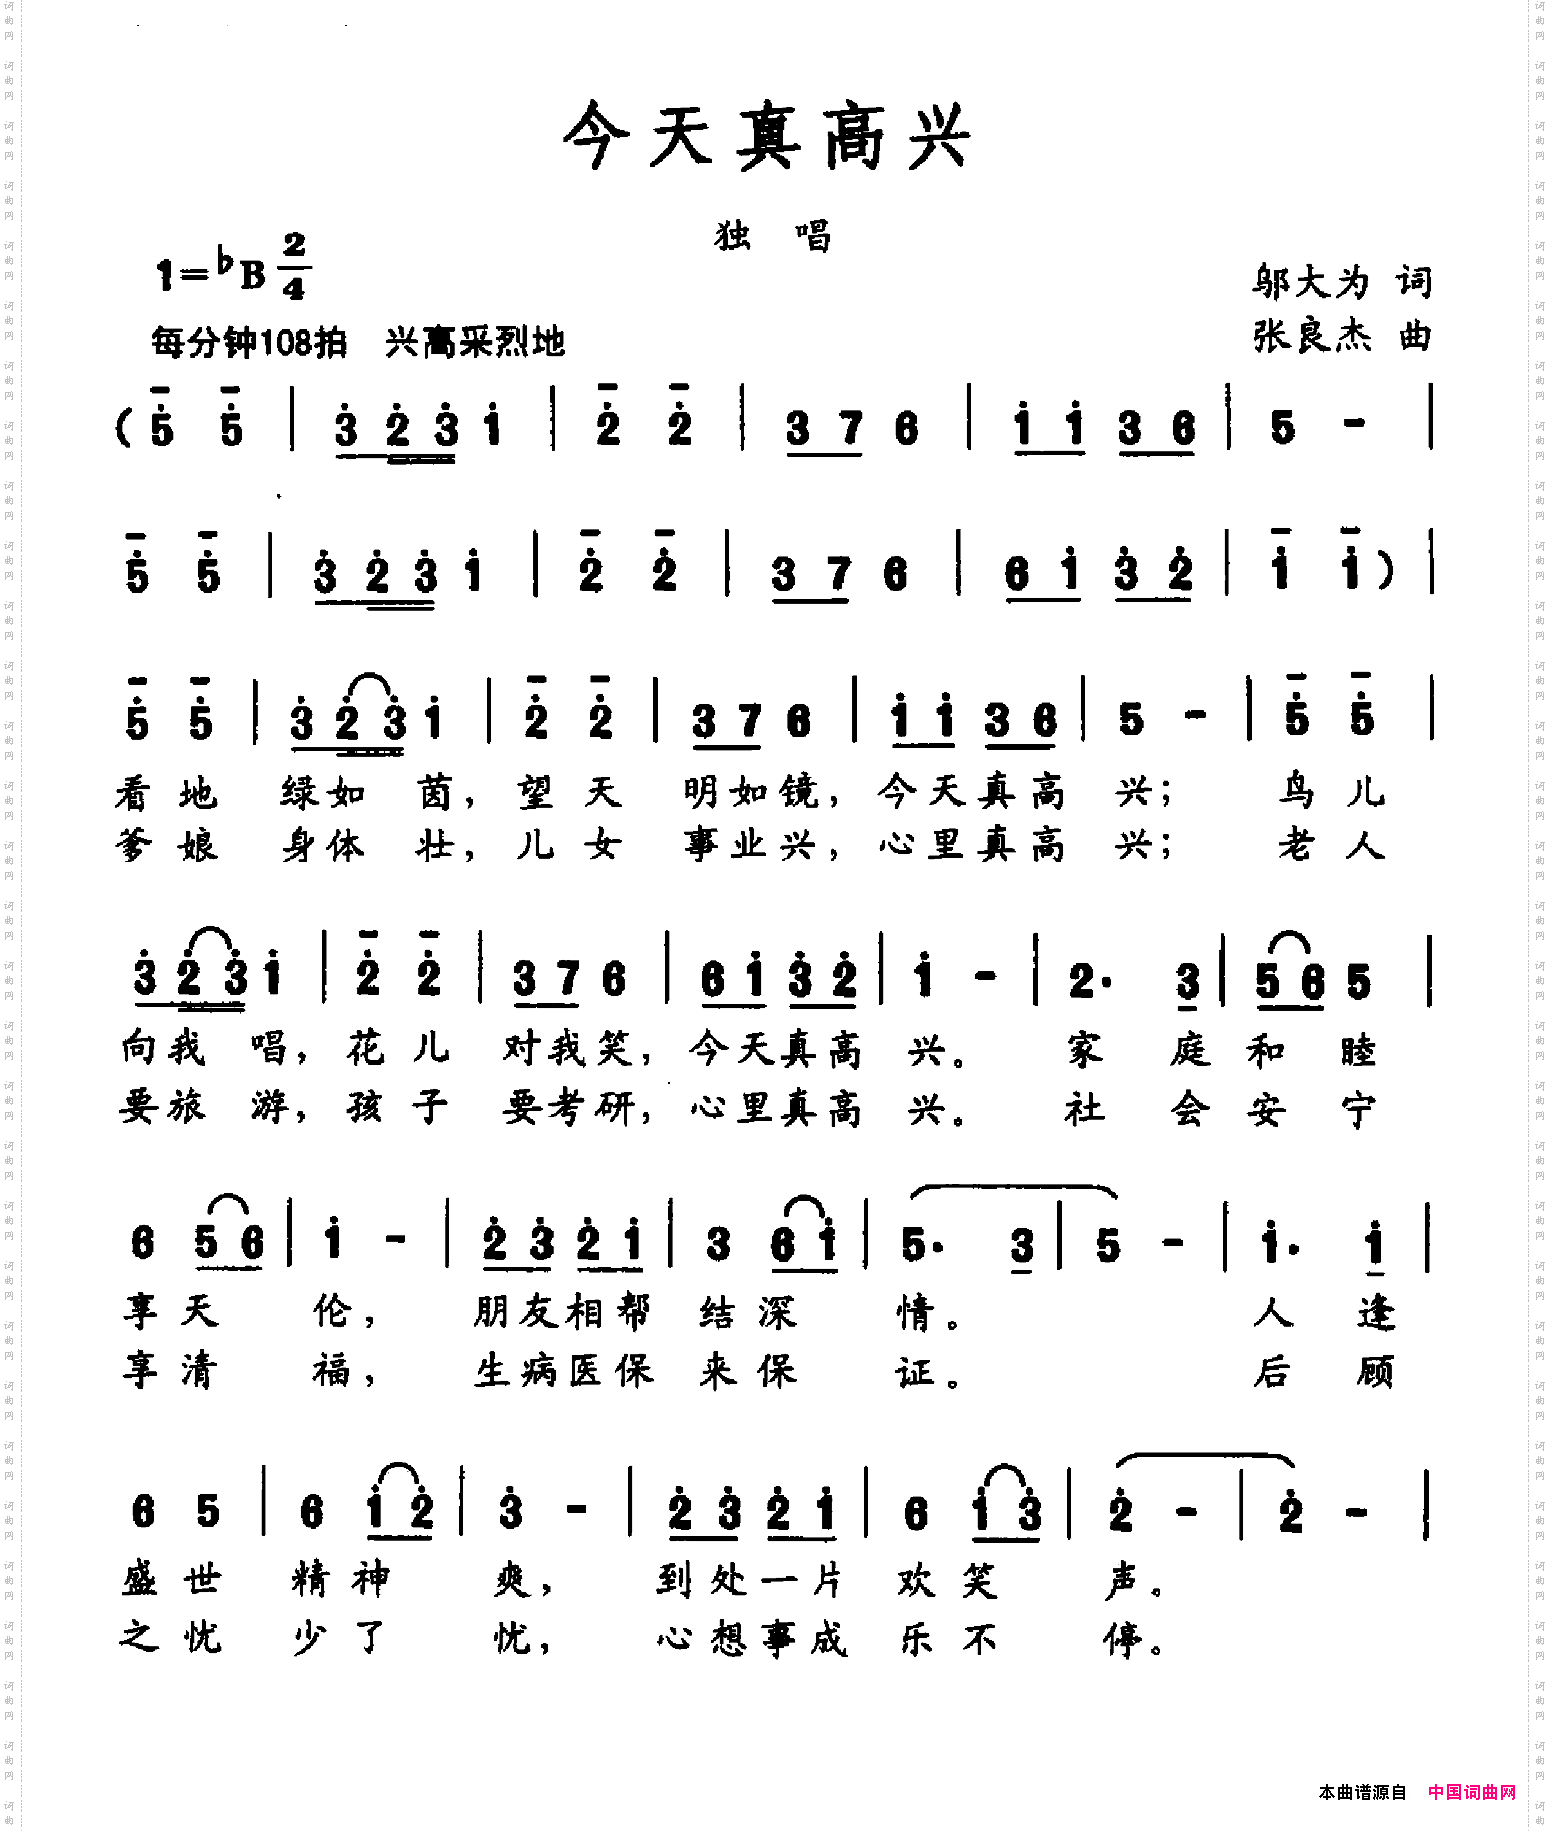 今天真高兴
独 唱
1=♭B 2/4
邬大为 词
每分钟108拍 兴高采烈地
张良杰 曲
( 5̇ 5̇ | 3̇ 2̇ 3̇ 1̇ | 2̇ 2̇ | 3 7 6 | 1̇ 1̇ 3 6 | 5 - |
5̇ 5̇ | 3̇ 2̇ 3̇ 1̇ | 2̇ 2̇ | 3 7 6 | 6 1̇ 3̇ 2̇ | 1̇ 1̇ ) |
5̇ 5̇ | 3̇ 2̇ 3̇ 1̇ | 2̇ 2̇ | 3 7 6 | 1̇ 1̇ 3 6 | 5 - | 5̇ 5̇ |
看地 绿如 茵，望天 明如镜，今天真高 兴； 鸟儿
爹娘 身体 壮，儿女 事业兴，心里真高 兴； 老人
3̇ 2̇ 3̇ 1̇ | 2̇ 2̇ | 3 7 6 | 6 1̇ 3̇ 2̇ | 1̇ - | 2· 3 | 5 6 5 |
向我 唱，花儿 对我笑，今天真高 兴。 家 庭 和 睦
要旅 游，孩子 要考研，心里真高 兴。 社 会 安 宁
6 5 6 | 1̇ - | 2̇ 3̇ 2̇ 1̇ | 3 6 1̇ | 5· 3 | 5 - | 1̇· 1̇ |
享天 伦， 朋友相帮 结深 情。 人 逢
享清 福， 生病医保 来保 证。 后 顾
6 5 | 6 1̇ 2̇ | 3̇ - | 2̇ 3̇ 2̇ 1̇ | 6 1̇ 3̇ | 2̇ - | 2̇ - |
盛世 精神 爽， 到处一片 欢笑 声。
之忧 少了 忧， 心想事成 乐不 停。
本曲谱源自 中国词曲网